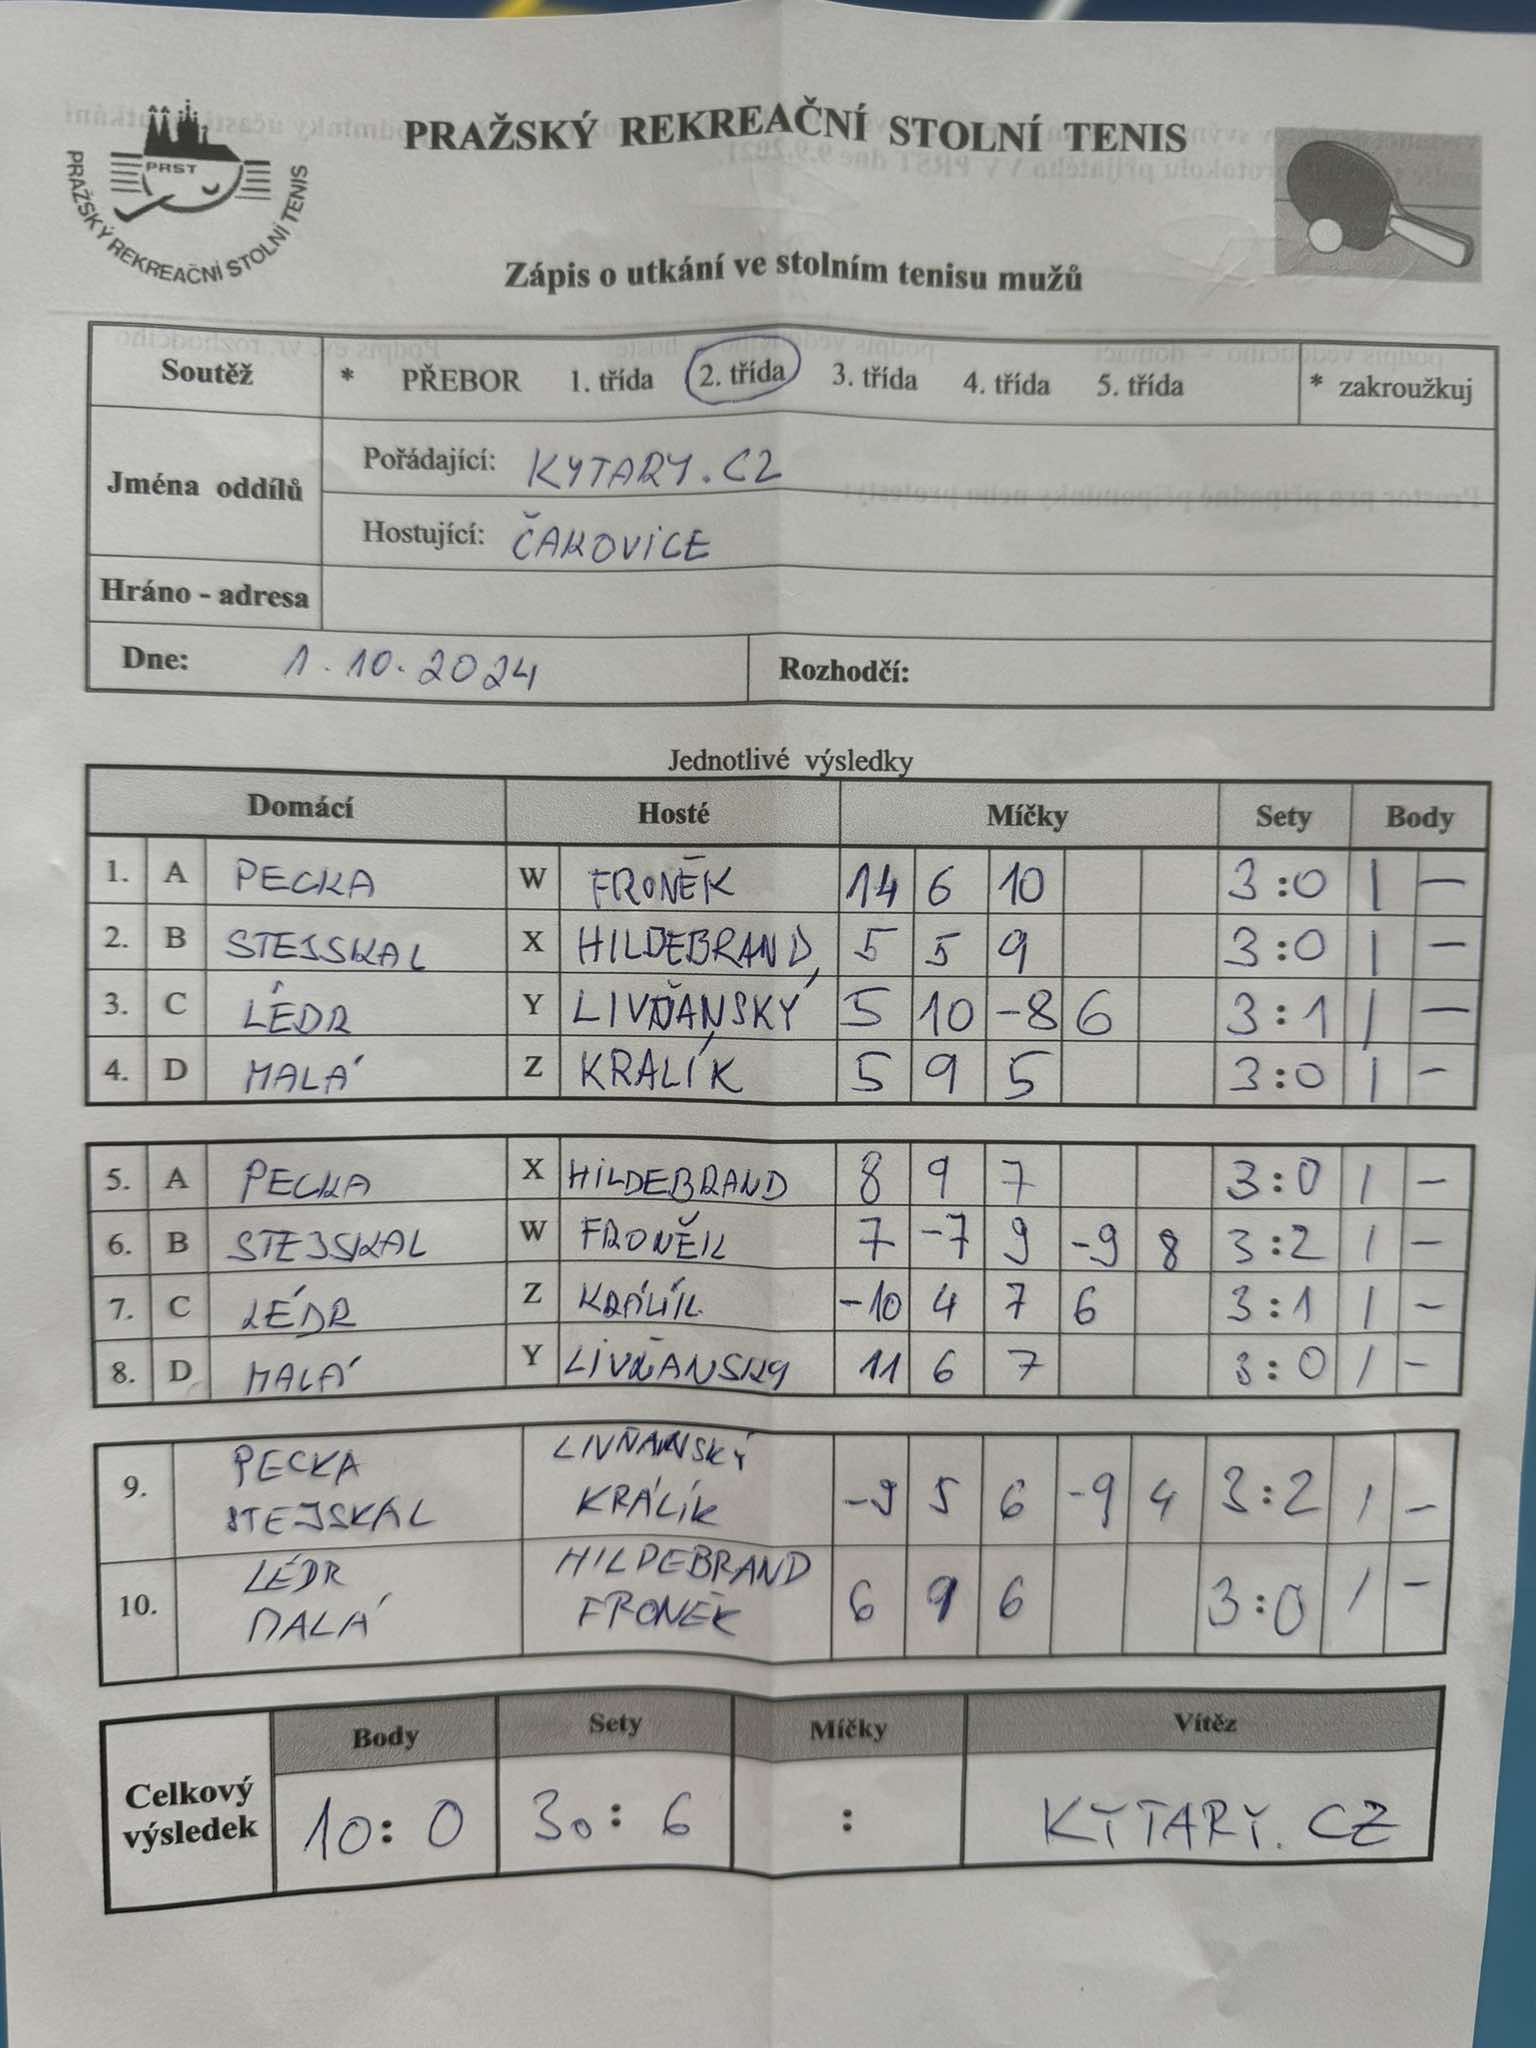 PRAŽSKÝ REKREAČNÍ STOLNÍ TENIS
PRST
PRAŽSKÝ REKREAČNÍ STOLNÍ TENIS
Zápis o utkání ve stolním tenisu mužů
Soutěž * PŘEBOR 1. třída 2. třída 3. třída 4. třída 5. třída * zakroužkuj
Jména oddílů
Pořádající: KYTARY.CZ
Hostující: ČAKOVICE
Hráno - adresa
Dne: 1.10.2024 Rozhodčí:
Jednotlivé výsledky
Domácí Hosté Míčky Sety Body
1. A PECKA W FRONĚK 14 6 10 3:0 1 –
2. B STEJSKAL X HILDEBRAND 5 5 9 3:0 1 –
3. C LÉDR Y LIVŇANSKÝ 5 10 -8 6 3:1 1 –
4. D MALÁ Z KRALÍK 5 9 5 3:0 1 –
5. A PECKA X HILDEBRAND 8 9 7 3:0 1 –
6. B STEJSKAL W FRONĚK 7 -7 9 -9 8 3:2 1 –
7. C LÉDR Z KRÁLÍK -10 4 7 6 3:1 1 –
8. D MALÁ Y LIVŇANSKY 11 6 7 3:0 1 –
9. PECKA LIVŇANSKÝ -9 5 6 -9 4 3:2 1 –
STEJSKAL KRÁLÍK
10. LÉDR HILDEBRAND 6 9 6 3:0 1 –
MALÁ FRONĚK
Celkový výsledek
Body Sety Míčky Vítěz
10:0 30:6 : KYTARY.CZ